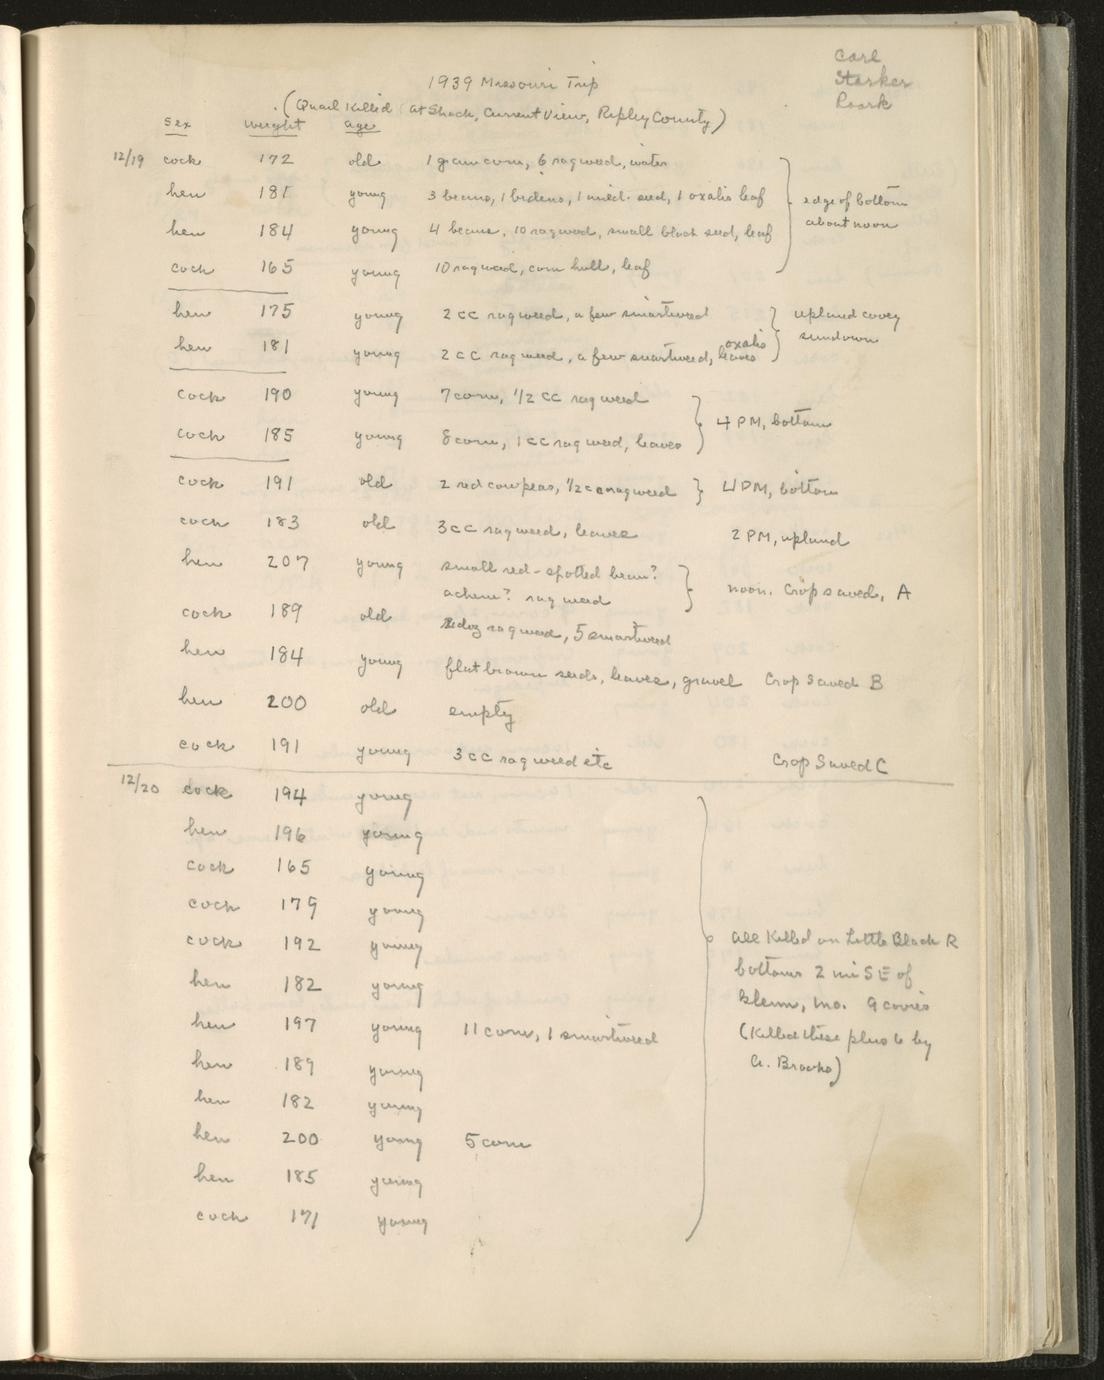 Carl
Starker
Roark
1939 Missouri Trip
(Quail Killed at Shack, Current View, Ripley County)
Sex weight age
12/19 cock 172 old 1 grain corn, 6 ragweed, water
hen 181 young 3 beans, 1 bidens, 1 unid. seed, 1 oxalis leaf
edge of bottom
about noon
hen 184 young 4 beans, 10 ragweed, small black seed, leaf
cock 165 young 10 ragweed, corn hull, leaf
hen 175 young 2 cc ragweed, a few smartweed
upland covey
sundown
hen 181 young 2 cc ragweed, a few smartweed, oxalis leaves
cock 190 young 7 corn, 1/2 cc ragweed
4 PM, bottom
cock 185 young 8 corn, 1 cc ragweed, leaves
cock 191 old 2 red cowpeas, 1/2 cc ragweed 4 PM, bottom
cock 183 old 3 cc ragweed, leaves 2 PM, upland
hen 207 young small red-spotted bean?
achene? ragweed
noon. Crop saved, A
cock 189 old ragweed, 5 smartweed
hen 184 young flat brown seeds, leaves, gravel Crop Saved B
hen 200 old empty
cock 191 young 3 cc ragweed etc Crop Saved C
12/20 cock 194 young
hen 196 young
cock 165 young
cock 179 young
cock 192 young
hen 182 young
hen 197 young 11 corn, 1 smartweed
hen 189 young
hen 182 young
hen 200 young 5 corn
hen 185 young
cock 171 young
All Killed on Little Black R
bottoms 2 mi SE of
Glenn, Mo. 9 covies
(Killed these plus 6 by
A. Brooks)